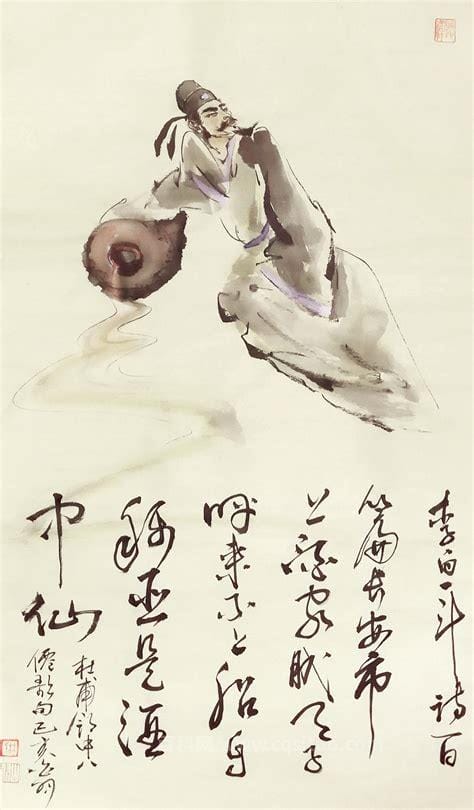 李白一斗诗百
篇长安市
上酒家眠天子
呼来不上船自
称臣是酒
中仙
杜甫饮中八
僊歌句己亥